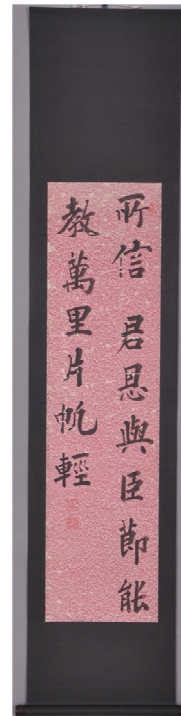 所信 君恩與臣節能
教萬里片帆輕